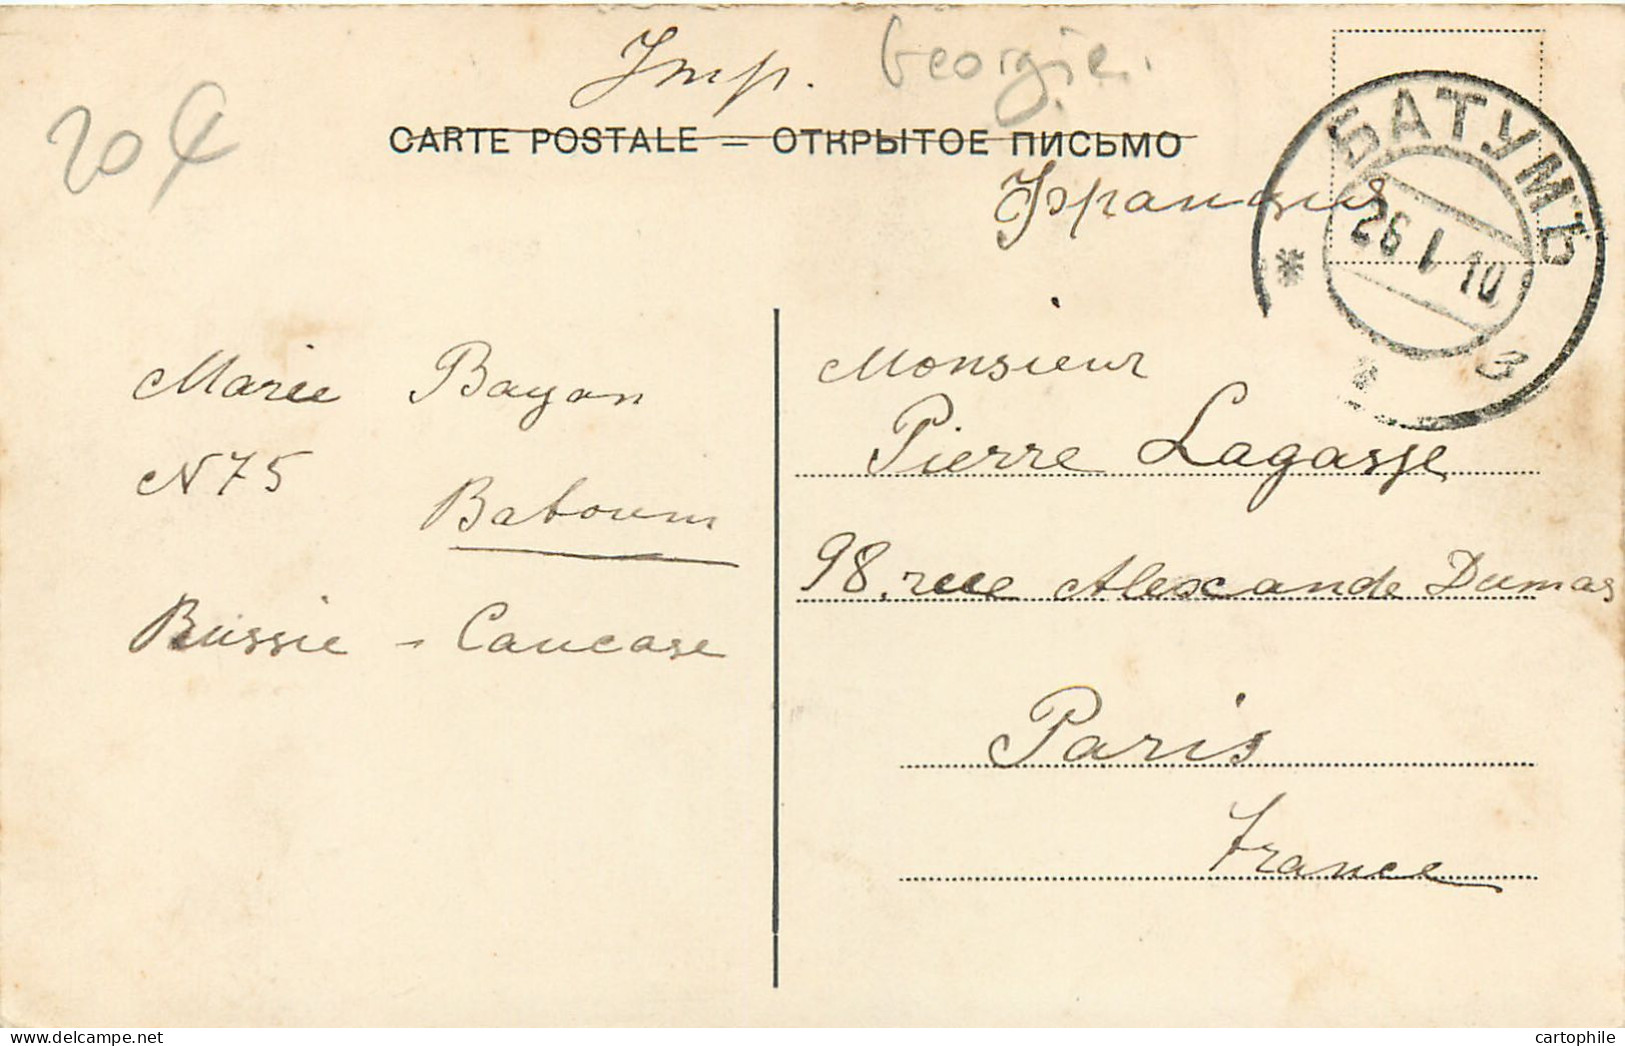 Imp. Georgie.
20 €
CARTE POSTALE = ОТКРЫТОЕ ПИСЬМО
Франція
БАТУМЪ
26 1 10
* * 3
Marie Bayan
N 75
Batoum
Russie - Caucase
Monsieur
Pierre Lagasse
98. rue Alexande Dumas
Paris
France
cartophile.com